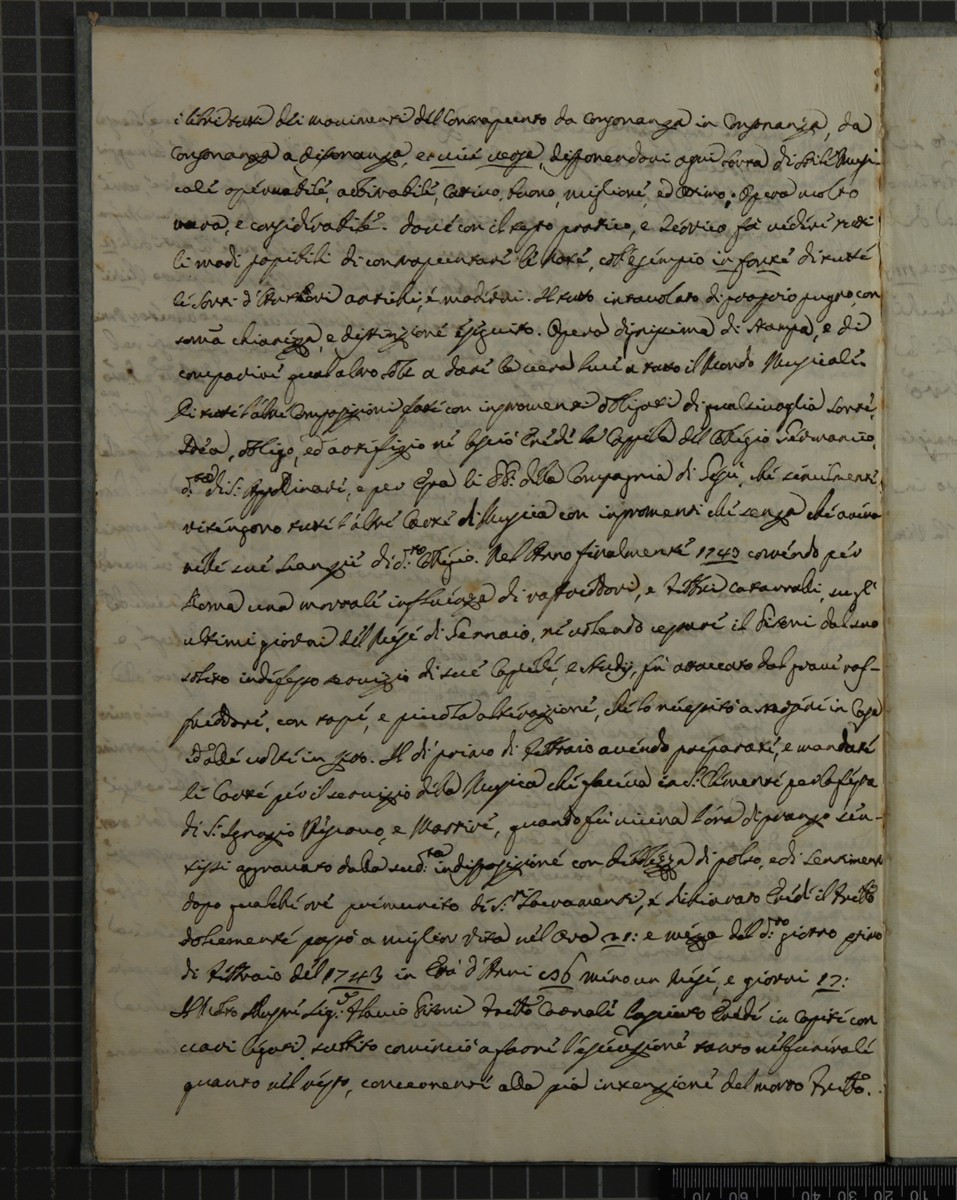 i libri tutti delli movimenti dell Contrapunto da Consonanza in Consonanza, da
Consonanza a disonanza, et vice versa, disponendovi ogni sorta di stili Musi-
cali osservabile, arrivabile, Cattivo, buono, migliore, ed ottimo. Opera molto
rara, e considerabile. dove con il testo pratico, e Teorico fà vedere tutti
li modi possibili di contrapuntare le Note, coll'esempio in fonte di tutte
le sorti d'Auttori antichi, e moderni. Il tutto intavolato di proprio pugno, con
somà chiarezza, e distinzione eseguito. Opera dignissima di stampa, e di
comparire quant'altro sole a dare la vera luce a tutto il Mondo Musicale.
Di tutte l'altre Composizioni fatte con instromenti obligati di qualsivoglia sorte,
Idea, obligo, ed artifizio né lasciò Erede la Cappella del Collegio Germanico,
d.ᵗᵃ di S. Appollinare, e per essa li PP: della Compagnia di Gesù, che similmente
ritengono tutte l'altre Carte di Musica con instromenti che senza che aveva
nelle sue stanzie di d:ᵗᵒ Collegio. Nel Anno finalmente 1743 correndo per
Roma una mortale influenza di raffreddori, e febbri catarrali, negl'
ultimi giorni del Mese di Gennaio, né volendo cessare il Pitoni dal suo
solito indefesso servizio di sue Cappelle, e studij, fù attaccato dal grave raf-
freddore, con tosse, e piccola alterazione, che lo necessitò a restare in Casa
e dalle volte in letto. Il dì primo di Febbraio avendo preparate, e mandate
le Carte per il servizio della Musica che faceva in S. Clemente per la festa
di S. Ignazio Vescovo, e Martire, quando fù vicina l'ora di pranzo sen-
tissi aggravato dalla sud:ᵗᵃ indisposizione con debolezza di polso, e di sentimenti
dopo qualche ore premunito de S.ᵐⁱ Sacramenti, e dichiarato Erede il fratello
dolcemente passò a miglior vita nel Ora 21: e mezza del d:ᵗᵒ giorno primo
di Febbraio del 1743 in Età d'Anni 86 meno un Mese, e giorni 17:
Il Molto Sig:ʳ Flavio Pitoni fratello Carnale lasciato Erede in Capite con
varii legati, subbito cominciò a farne l'esecuzione tanto nel funerale
quanto nel resto, concernente alla pia intenzione del morto fratello.